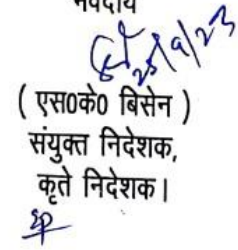 25/9/23
( एस0के0 बिसेन )
संयुक्त निदेशक,
कृते निदेशक।